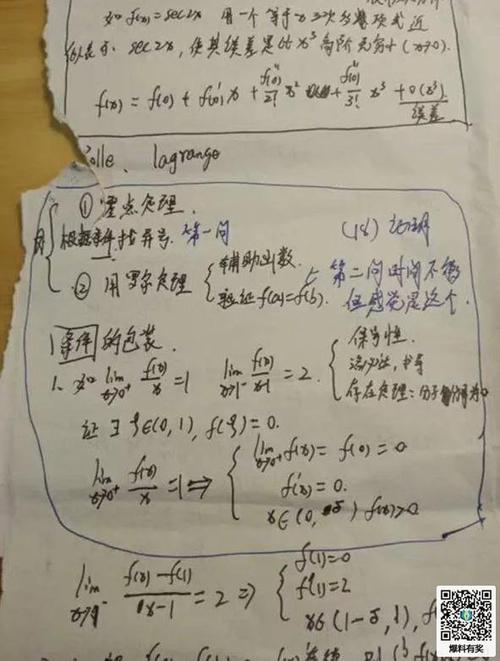 如 f(x)=sec2x 用一个等于x三次多项式近
似表示 sec2x, 使其误差是比x³高阶无穷小(x→0).
f(x) = f(0) + f'(0)x + f''(0)/2! x² + f'''(0)/3! x³ + o(x³)
误差
Rolle、lagrange
① 零点定理.
根据条件找异号. 第一问
(18) 证明
② 用罗尔定理 { 辅助函数.
验证 f(a)=f(b).
第二问时间不够
但感觉是这个.
1 条件的包装.
1、如 lim x→0⁺ f(x)/x = 1  lim x→1⁻ f(x)/x-1 = 2. { 保号性.
洛必达, 求导
存在定理: 分子
证 ∃ ξ∈(0,1), f(ξ)=0.
lim x→0⁺ f(x)/x = 1 ⇒ { lim x→0⁺ f(x) = f(0) = 0
f'(x)=0.
x∈(0, δ) f(x)>0
lim x→1⁻ f(x)-f(1)/x-1 = 2 ⇒ { f(1)=0
f'(1)=2
x∈(1-δ, 1), f
爆料有奖